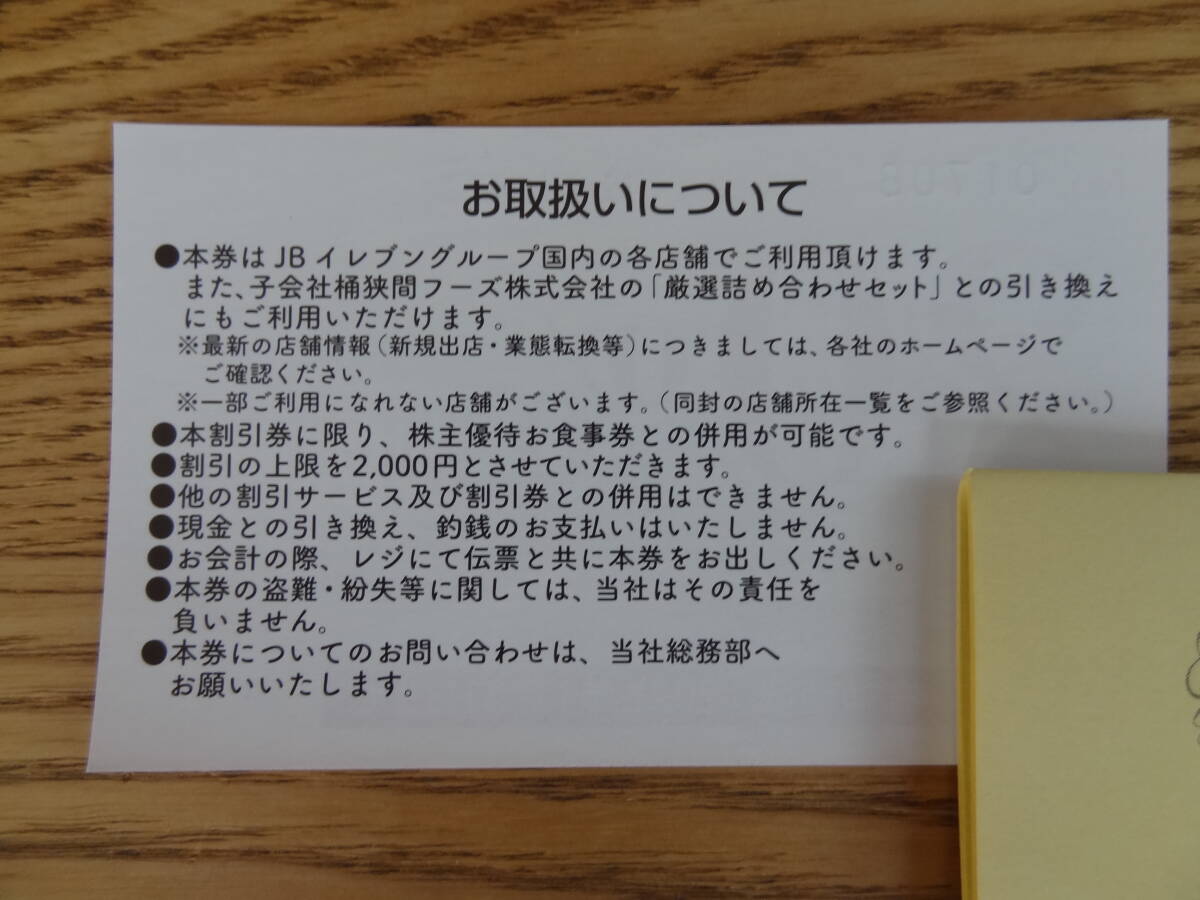 お取扱いについて
●本券は JB イレブングループ国内の各店舗でご利用頂けます。
また、子会社桶狭間フーズ株式会社の「厳選詰め合わせセット」との引き換え
にもご利用いただけます。
※最新の店舗情報（新規出店・業態転換等）につきましては、各社のホームページで
ご確認ください。
※一部ご利用になれない店舗がございます。（同封の店舗所在一覧をご参照ください。）
●本割引券に限り、株主優待お食事券との併用が可能です。
●割引の上限を2,000円とさせていただきます。
●他の割引サービス及び割引券との併用はできません。
●現金との引き換え、釣銭のお支払いはいたしません。
●お会計の際、レジにて伝票と共に本券をお出しください。
●本券の盗難・紛失等に関しては、当社はその責任を
負いません。
●本券についてのお問い合わせは、当社総務部へ
お願いいたします。